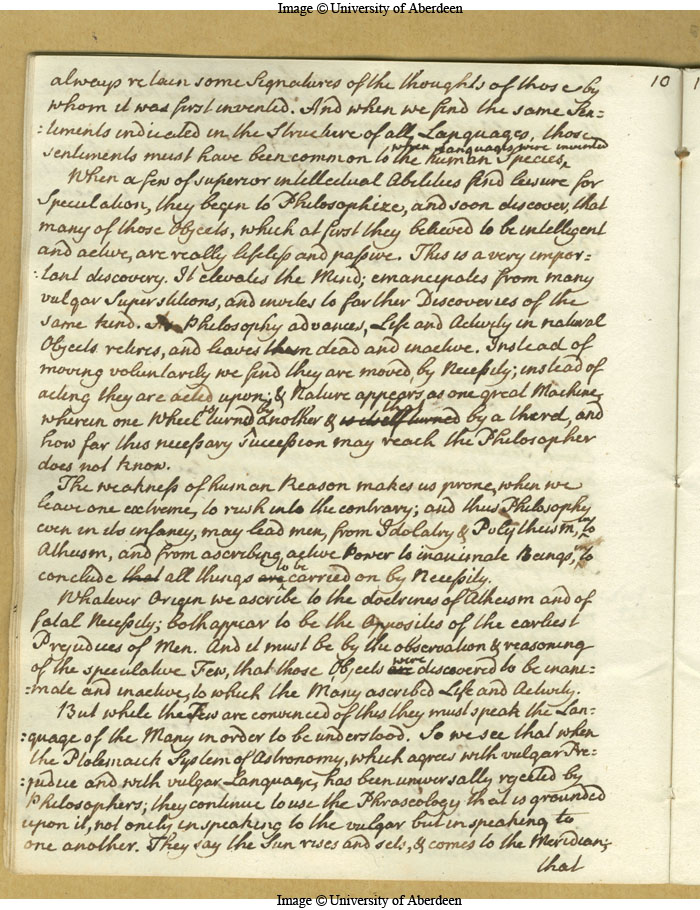 Image © University of Aberdeen
10
always retain some Signatures of the thoughts of those by
whom it was first invented. And when we find the same Sen=
:timents indicated in the Structure of all Languages, those
when Languages were invented
sentiments must have been common to the human Species,
When a few of superior intellectual Abilities find leisure for
Speculation, they begin to Philosophize, and soon discover, that
many of those Objects, which at first they believed to be intelligent
and active, are really lifeless and passive. This is a very impor=
:tant discovery. It elevates the Mind; emancipates from many
vulgar Superstitions, and invites to farther Discoveries of the
same kind. As Philosophy advances, Life and Activity in natural
Objects retires, and leaves them dead and inactive. Instead of
moving voluntarily we find they are moved by Necessity; instead of
acting they are acted upon; & Nature appears as one great Machine,
wherein one Wheel turned by another & is itself turned by a third, and
how far this necessary Succession may reach the Philosopher
does not know.
The weakness of human Reason makes us prone, when we
leave one extreme, to rush into the contrary; and thus Philosophy
even in its infancy, may lead men, from Idolatry & Polytheism, to
Atheism, and from ascribing active Power to inanimate Beings, to
to be
conclude that all things are carried on by Necessity.
Whatever Origin we ascribe to the doctrines of Atheism and of
fatal Necessity; both appear to be the Opposites of the earliest
Prejudices of Men. And it must be by the observation & reasoning
were
of the speculative Few, that those Objects are discovered to be inani=
=mate and inactive, to which the Many ascribed Life and Activity.
But while the Few are convinced of this they must speak the Lan=
:guage of the Many in order to be understood. So we see that when
the Ptolemaick System of Astronomy, which agrees with vulgar Pre=
:judice and with vulgar Language, has been universally rejected by
Philosophers; they continue to use the Phraseology that is grounded
upon it, not onely in speaking to the vulgar but in speaking to
one another. They say the Sun rises and sets, & comes to the Meridian;
that
Image © University of Aberdeen